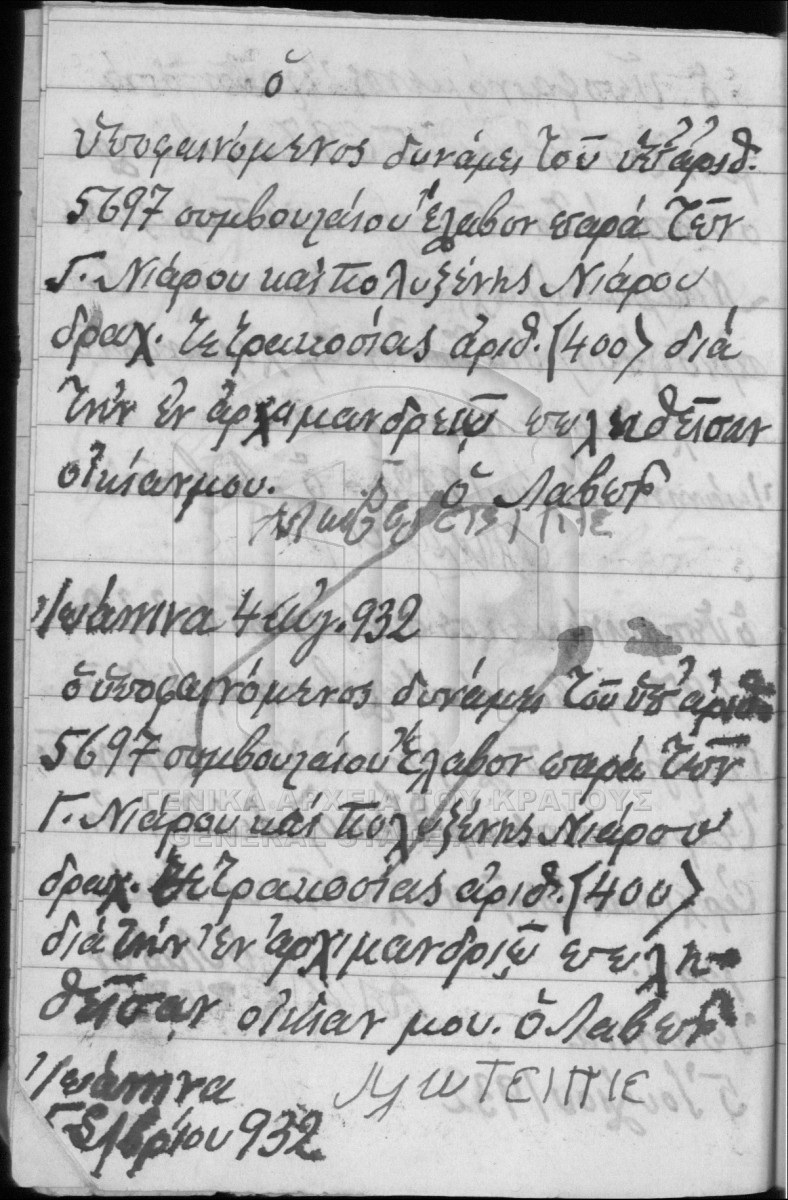 ὁ
ὑποφαινόμενος δυνάμει τοῦ ὑπ' ἀριθ.
5697 συμβουλαίου ἔλαβον παρά τῶν
Γ. Νιάρου καί Πολυξένης Νιάρου
δραχ. τετρακοσίας ἀριθ. (400) διά
τήν ἐν ἀρχιμανδρειῷ πωληθεῖσαν
οἰκίαν μου. ὁ Λαβων
Ἰωάννινα 4 Αὐγ. 932
ὁ ὑποφαινόμενος δυνάμει τοῦ ὑπ' ἀριθ.
5697 συμβουλαίου ἔλαβον παρά τῶν
ΓΕΝΙΚΑ ΑΡΧΕΙΑ ΤΟΥ ΚΡΑΤΟΥΣ
Γ. Νιάρου καί Πολυξένης Νιάρου
GENERAL STATE
δραχ. τετρακοσίας ἀριθ. (400)
διά τήν ἐν ἀρχιμανδριῷ πωλη-
θεῖσαν οἰκίαν μου. ὁ Λαβων
Ἰωάννινα
5 7/βρίου 932